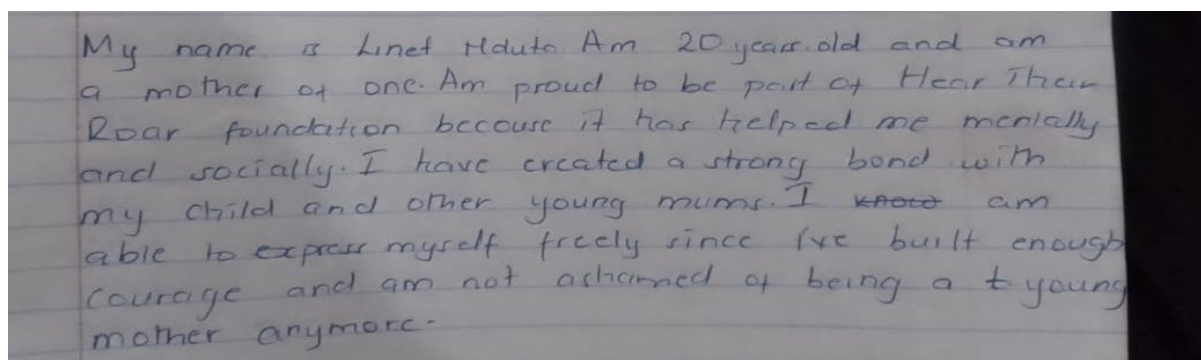 My name is Linet Hduta. Am 20 years old and am
a mother of one. Am proud to be part of Hear Their
Roar foundation because it has helped me mentally
and socially. I have created a strong bond with
my child and other young mums. I am
able to express myself freely since I've built enough
courage and am not ashamed of being a t young
mother anymore.